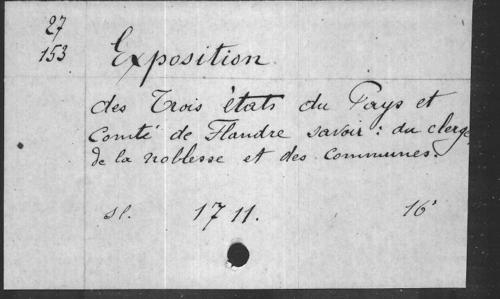 27
153
Exposition
des Trois états du Pays et
Comté de Flandre savoir: du clergé
de la noblesse et des communes.
sl. 1711. 16°